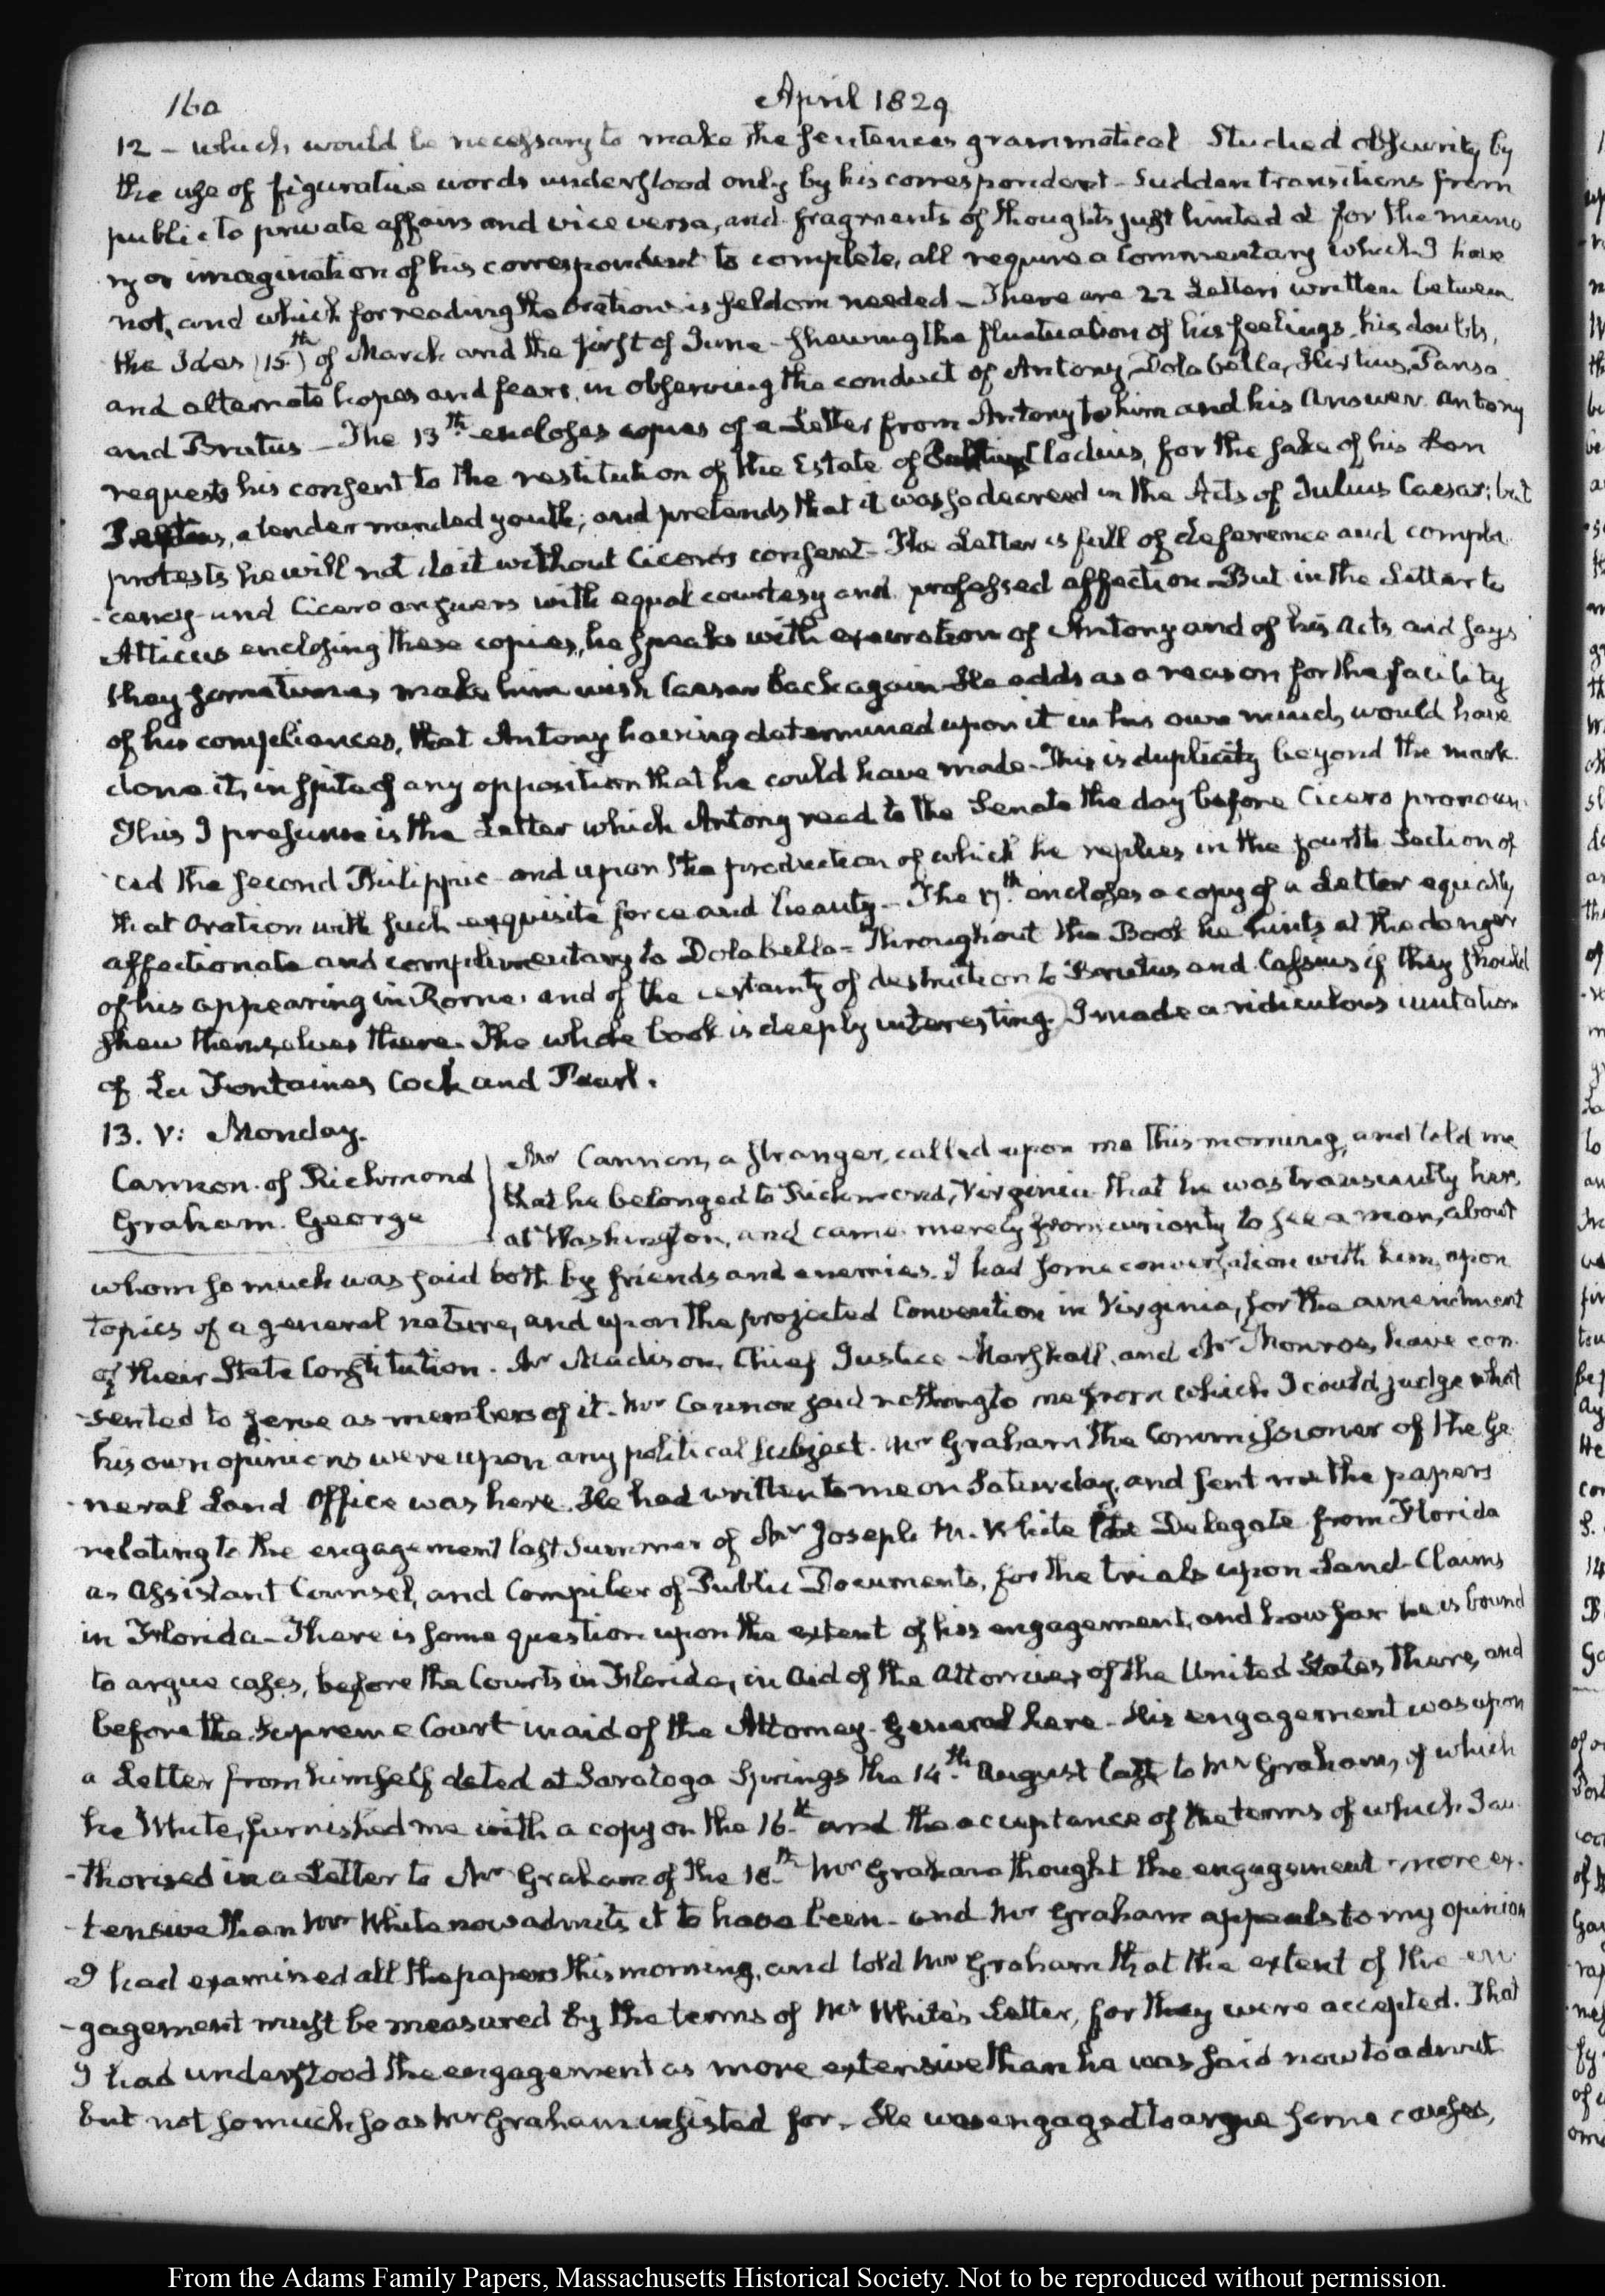 160
April 1829
12 – which would be necessary to make the sentences grammatical Studied obscurity by
the use of figurative words understood only by his correspondent – Sudden transitions from
public to private affairs and vice versa, and fragments of thoughts just hinted at for the memo
ry or imagination of his correspondent to complete, all require a Commentary which I have
not, and which for reading the Orations is seldom needed – There are 22 Letters written between
the Ides (15th) of March and the first of June – shewing the fluctuation of his feelings, his doubts,
and alternate hopes and fears, in observing the conduct of Antony, Dolabella, Hirtius, Pansa
and Brutus – The 13th encloses copies of a Letter from Antony to him and his Answer. Antony
requests his consent to the restitution of the Estate of Clodius, for the sake of his son
a tender minded youth; and pretends that it was so decreed in the Acts of Julius Caesar; but
protests he will not do it without Cicero's consent – The Letter is full of deference and compla-
-cency and Cicero answers with equal courtesy and professed affection – But in the Letter to
Atticus enclosing these copies, he speaks with execration of Antony and of his Acts and says
they sometimes make him wish Caesar back again – He adds as a reason for the facility
of his compliances, that Antony having determined upon it in his own mind, would have
done it, in spite of any opposition that he could have made – This is duplicity beyond the mark.
This I presume is the Letter which Antony read to the Senate the day before Cicero pronoun-
-ced the second Philippic – and upon the production of which he replies in the fourth Section of
that Oration with such exquisite force and beauty – The 17th encloses a copy of a Letter equally
affectionate and complimentary to Dolabella – Throughout the Book he hints at the danger
of his appearing in Rome, and of the certainty of destruction to Brutus and Cassius if they should
shew themselves there. The whole book is deeply interesting. I made a ridiculous imitation
of La Fontaines Cock and Pearl.
13. V: Monday.
Cannon. of Richmond
Graham. George
Mr Cannon, a stranger, called upon me this morning, and told me
that he belonged to Richmond, Virginia that he was transiently here
at Washington, and came merely from curiosity to see a man, about
whom so much was said both by friends and enemies. I had some conversation with him, upon
topics of a general nature, and upon the projected Convention in Virginia, for the amendment
of their State Constitution. Mr Madison, Chief Justice Marshall, and Mr Monroe, have con-
-sented to serve as members of it. Mr Cannon said nothing to me from which I could judge what
his own opinions were upon any political subject. Mr Graham the Commissioner of the Ge-
-neral Land Office was here. He had written to me on Saturday, and sent me the papers
relating to the engagement last Summer of Mr Joseph M. White the Delegate from Florida
as Assistant Counsel, and Compiler of Public Documents, for the trials upon Land Claims
in Florida – There is some question upon the extent of his engagement, and how far he is bound
to argue cases, before the Courts in Florida, in Aid of the Attornies of the United States there, and
before the Supreme Court in aid of the Attorney-General here – His engagement was upon
a Letter from himself dated at Saratoga Springs the 14th August last to Mr Graham, of which
he White, furnished me with a copy on the 16th and the acceptance of the terms of which I au-
-thorised in a Letter to Mr Graham of the 18th Mr Graham thought the engagement more ex-
-tensive than Mr White now admits it to have been – and Mr Graham appeals to my opinion
I had examined all the papers this morning, and told Mr Graham that the extent of the en-
-gagement must be measured by the terms of Mr White's Letter, for they were accepted. That
I had understood the engagement as more extensive than he was said now to admit
but not so much so as Mr Graham insisted for. He was engaged to argue some causes,
From the Adams Family Papers, Massachusetts Historical Society. Not to be reproduced without permission.